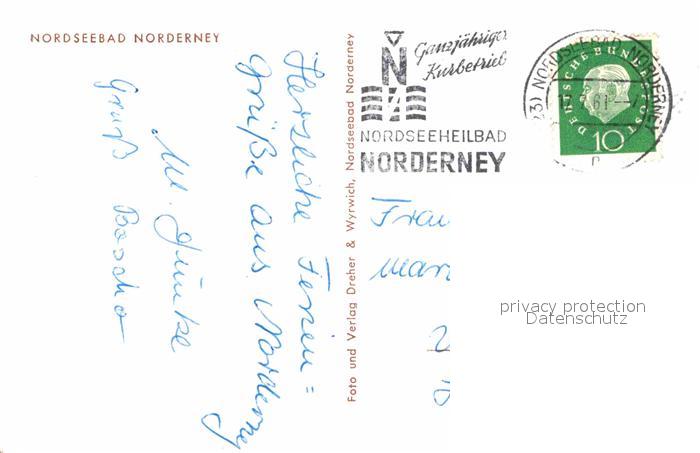 NORDSEEBAD NORDERNEY
Herzliche Ferien=
grüße aus Norderney
M. Junke
Gruß Bascha
Foto und Verlag Dreher & Wyrwich, Nordseebad Norderney
N
Ganzjähriger
Kurbetrieb
NORDSEEHEILBAD
NORDERNEY
(23) NORDSEEBAD NORDERNEY
61
DEUTSCHE BUNDESPOST
10
Frau
Mar
2
privacy protection
Datenschutz